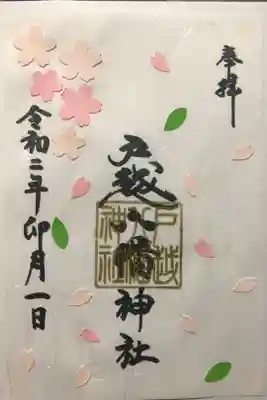 奉拝
戸越八幡神社
戸越八幡神社
令和二年卯月一日